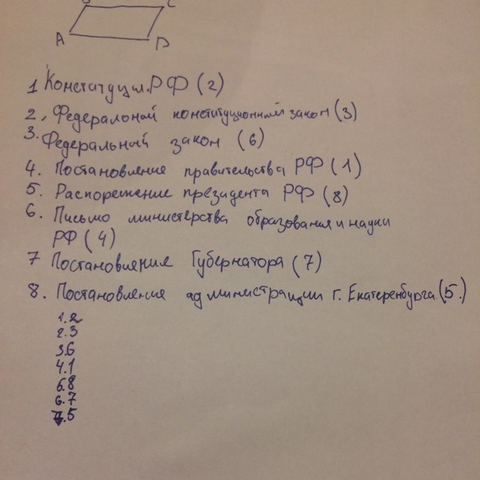 B C
A D
1 Конституция РФ (2)
2, Федералоной конституционний закон (3)
3. Федеральный закон (6)
4. Постановление правительства РФ (1)
5. Распорежение президента РФ (8)
6. Письмо министерства образования и науки
РФ (4)
7 Постановление Губернатора (7)
8. Постановление администрации г. Екатеренбурга. (5.)
1.2
2.3
3.6
4.1
5.8
6.7
7.5